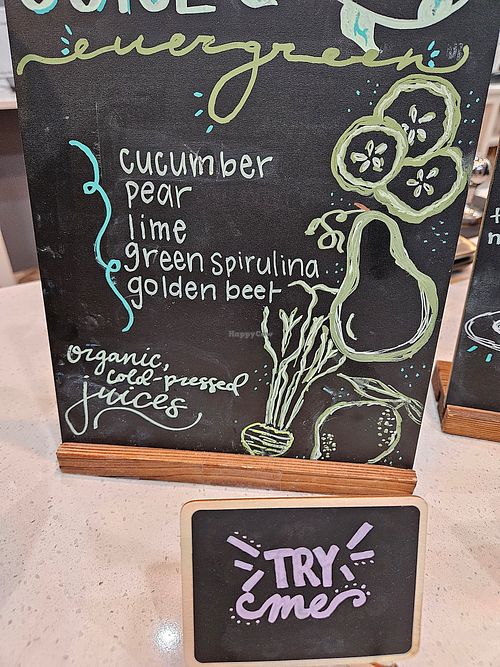 evergreen
cucumber
pear
lime
green spirulina
golden beet
organic,
cold-pressed
juices
HappyCow
TRY
me